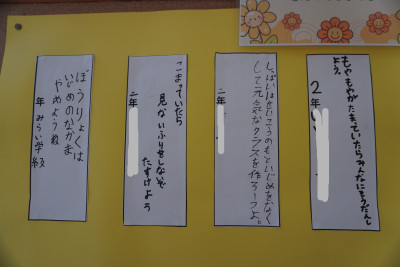 もやもやがたまっていたらみんなにそうだんし
よう。
2年
しっぱいはせいこうのもといじめをなく
して元気なクラスを作ろーうよ。
二年
こまっていたら
見ないふりをしないで
たすけよう
二年
ぼうりょくは
いじめのなかま
やめよう

年 みらい学級